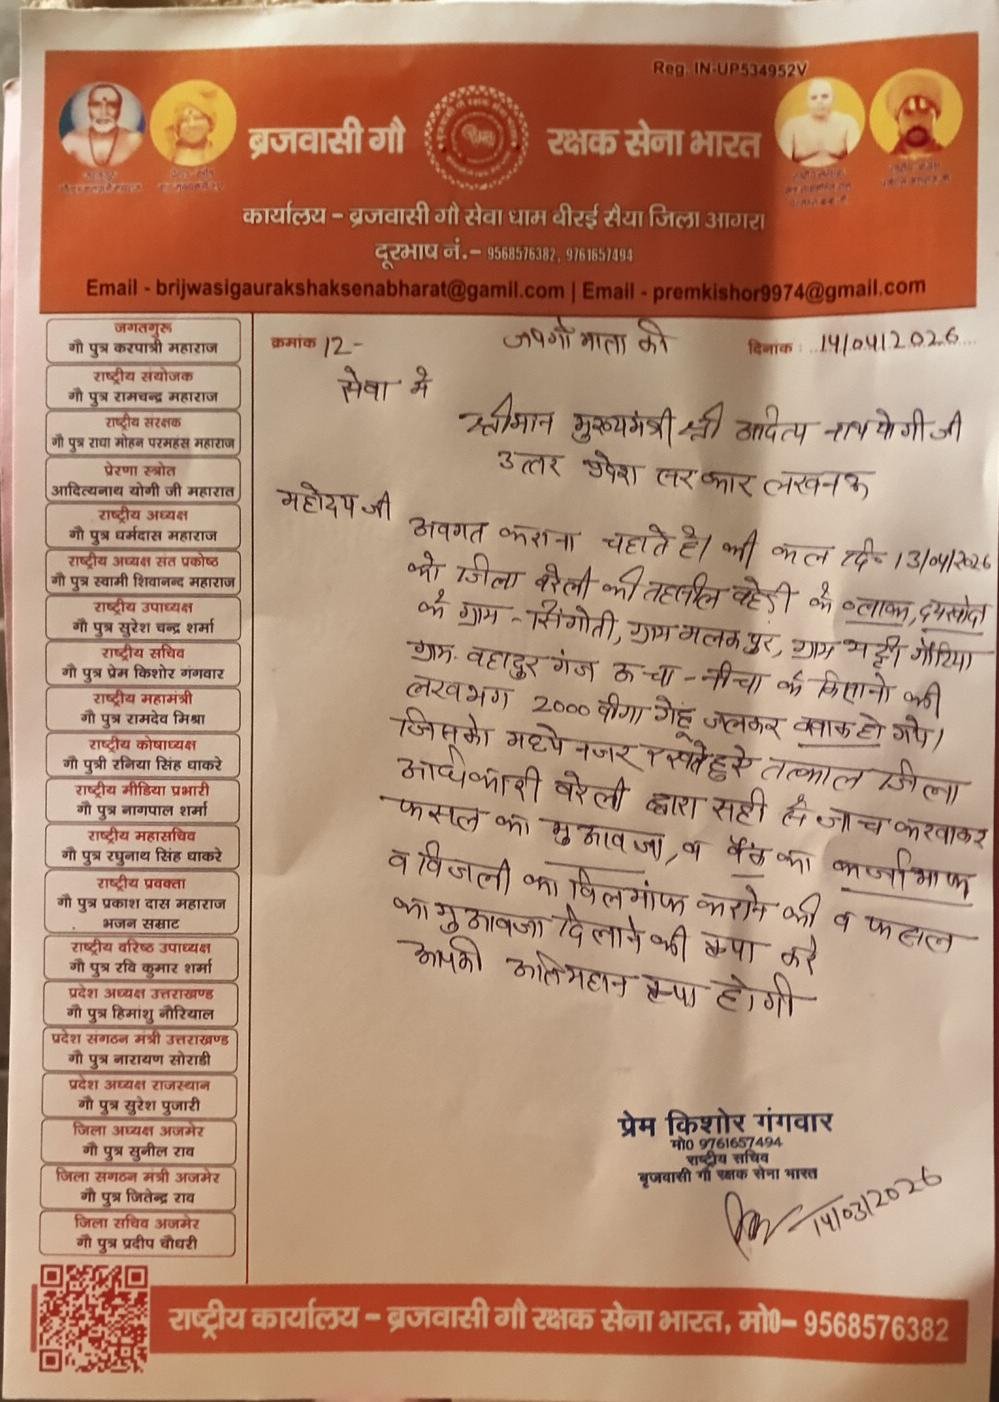 Reg. IN-UP534952V
ब्रजवासी गौ रक्षक सेना भारत
कार्यालय - ब्रजवासी गौ सेवा धाम बीरई सैया जिला आगरा
दूरभाष नं.- 9568576382, 9761657494
Email - brijwasigaurakshaksenabharat@gamil.com | Email - premkishor9974@gmail.com
जगतगुरू
गौ पुत्र करपात्री महाराज
राष्ट्रीय संयोजक
गौ पुत्र रामचन्द्र महाराज
राष्ट्रीय संरक्षक
गौ पुत्र राधा मोहन परमहंस महाराज
प्रेरणा स्त्रोत
आदित्यनाथ योगी जी महारात
राष्ट्रीय अध्यक्ष
गौ पुत्र धर्मदास महाराज
राष्ट्रीय अध्यक्ष संत प्रकोष्ठ
गौ पुत्र स्वामी शिवानन्द महाराज
राष्ट्रीय उपाध्यक्ष
गौ पुत्र सुरेश चन्द्र शर्मा
राष्ट्रीय सचिव
गौ पुत्र प्रेम किशोर गंगवार
राष्ट्रीय महामंत्री
गौ पुत्र रामदेव मिश्रा
राष्ट्रीय कोषाध्यक्ष
गौ पुत्री रनिया सिंह धाकरे
राष्ट्रीय मीडिया प्रभारी
गौ पुत्र नागपाल शर्मा
राष्ट्रीय महासचिव
गौ पुत्र रघुनाथ सिंह धाकरे
राष्ट्रीय प्रवक्ता
गौ पुत्र प्रकाश दास महाराज
भजन सम्राट
राष्ट्रीय वरिष्ठ उपाध्यक्ष
गौ पुत्र रवि कुमार शर्मा
प्रदेश अध्यक्ष उत्तराखण्ड
गौ पुत्र हिमांशु नौरियाल
प्रदेश संगठन मंत्री उत्तराखण्ड
गौ पुत्र नारायण सोराडी
प्रदेश अध्यक्ष राजस्थान
गौ पुत्र सुरेश पुजारी
जिला अध्यक्ष अजमेर
गौ पुत्र सुनील राव
जिला संगठन मंत्री अजमेर
गौ पुत्र जितेन्द्र राव
जिला सचिव अजमेर
गौ पुत्र प्रदीप चौधरी
क्रमांक 12- जयगौ माता की दिनाक : 14/04/2026
सेवा मे
श्रीमान मुख्यमंत्री श्री आदित्य नाथ योगी जी
उत्तर प्रदेश सरकार लखनऊ
महोदय जी
अवगत कराना चहाते है। की कल दि० 13/04/2026
को जिला बरेली की तहसील बहेडी के ब्लाक, दमखोदा
के ग्राम - सिंगोती, ग्राम मलकपुर, ग्राम भट्टी गौटिया
ग्राम. बहादुर गंज ऊचा - नीचा के किसानो की
लखभग 2000 बीगा गेहू जलकर खाक हो गये।
जिसको मध्ये नजर रखतेहुऐ तत्काल जिला
अधिकारी बरेली द्वारा सही से जाच करवाकर
फसल का मुआवजा, व बैंक का कर्जा माफ
व बिजली का बिल माफ कराने की व फसल
का मुआवजा दिलाने की कृपा करे
आपकी अति महान कृपा होगी
प्रेम किशोर गंगवार
मो0 9761657494
राष्ट्रीय सचिव
बृजवासी गौ रक्षक सेना भारत
14/03/2026
राष्ट्रीय कार्यालय - ब्रजवासी गौ रक्षक सेना भारत, मो0- 9568576382